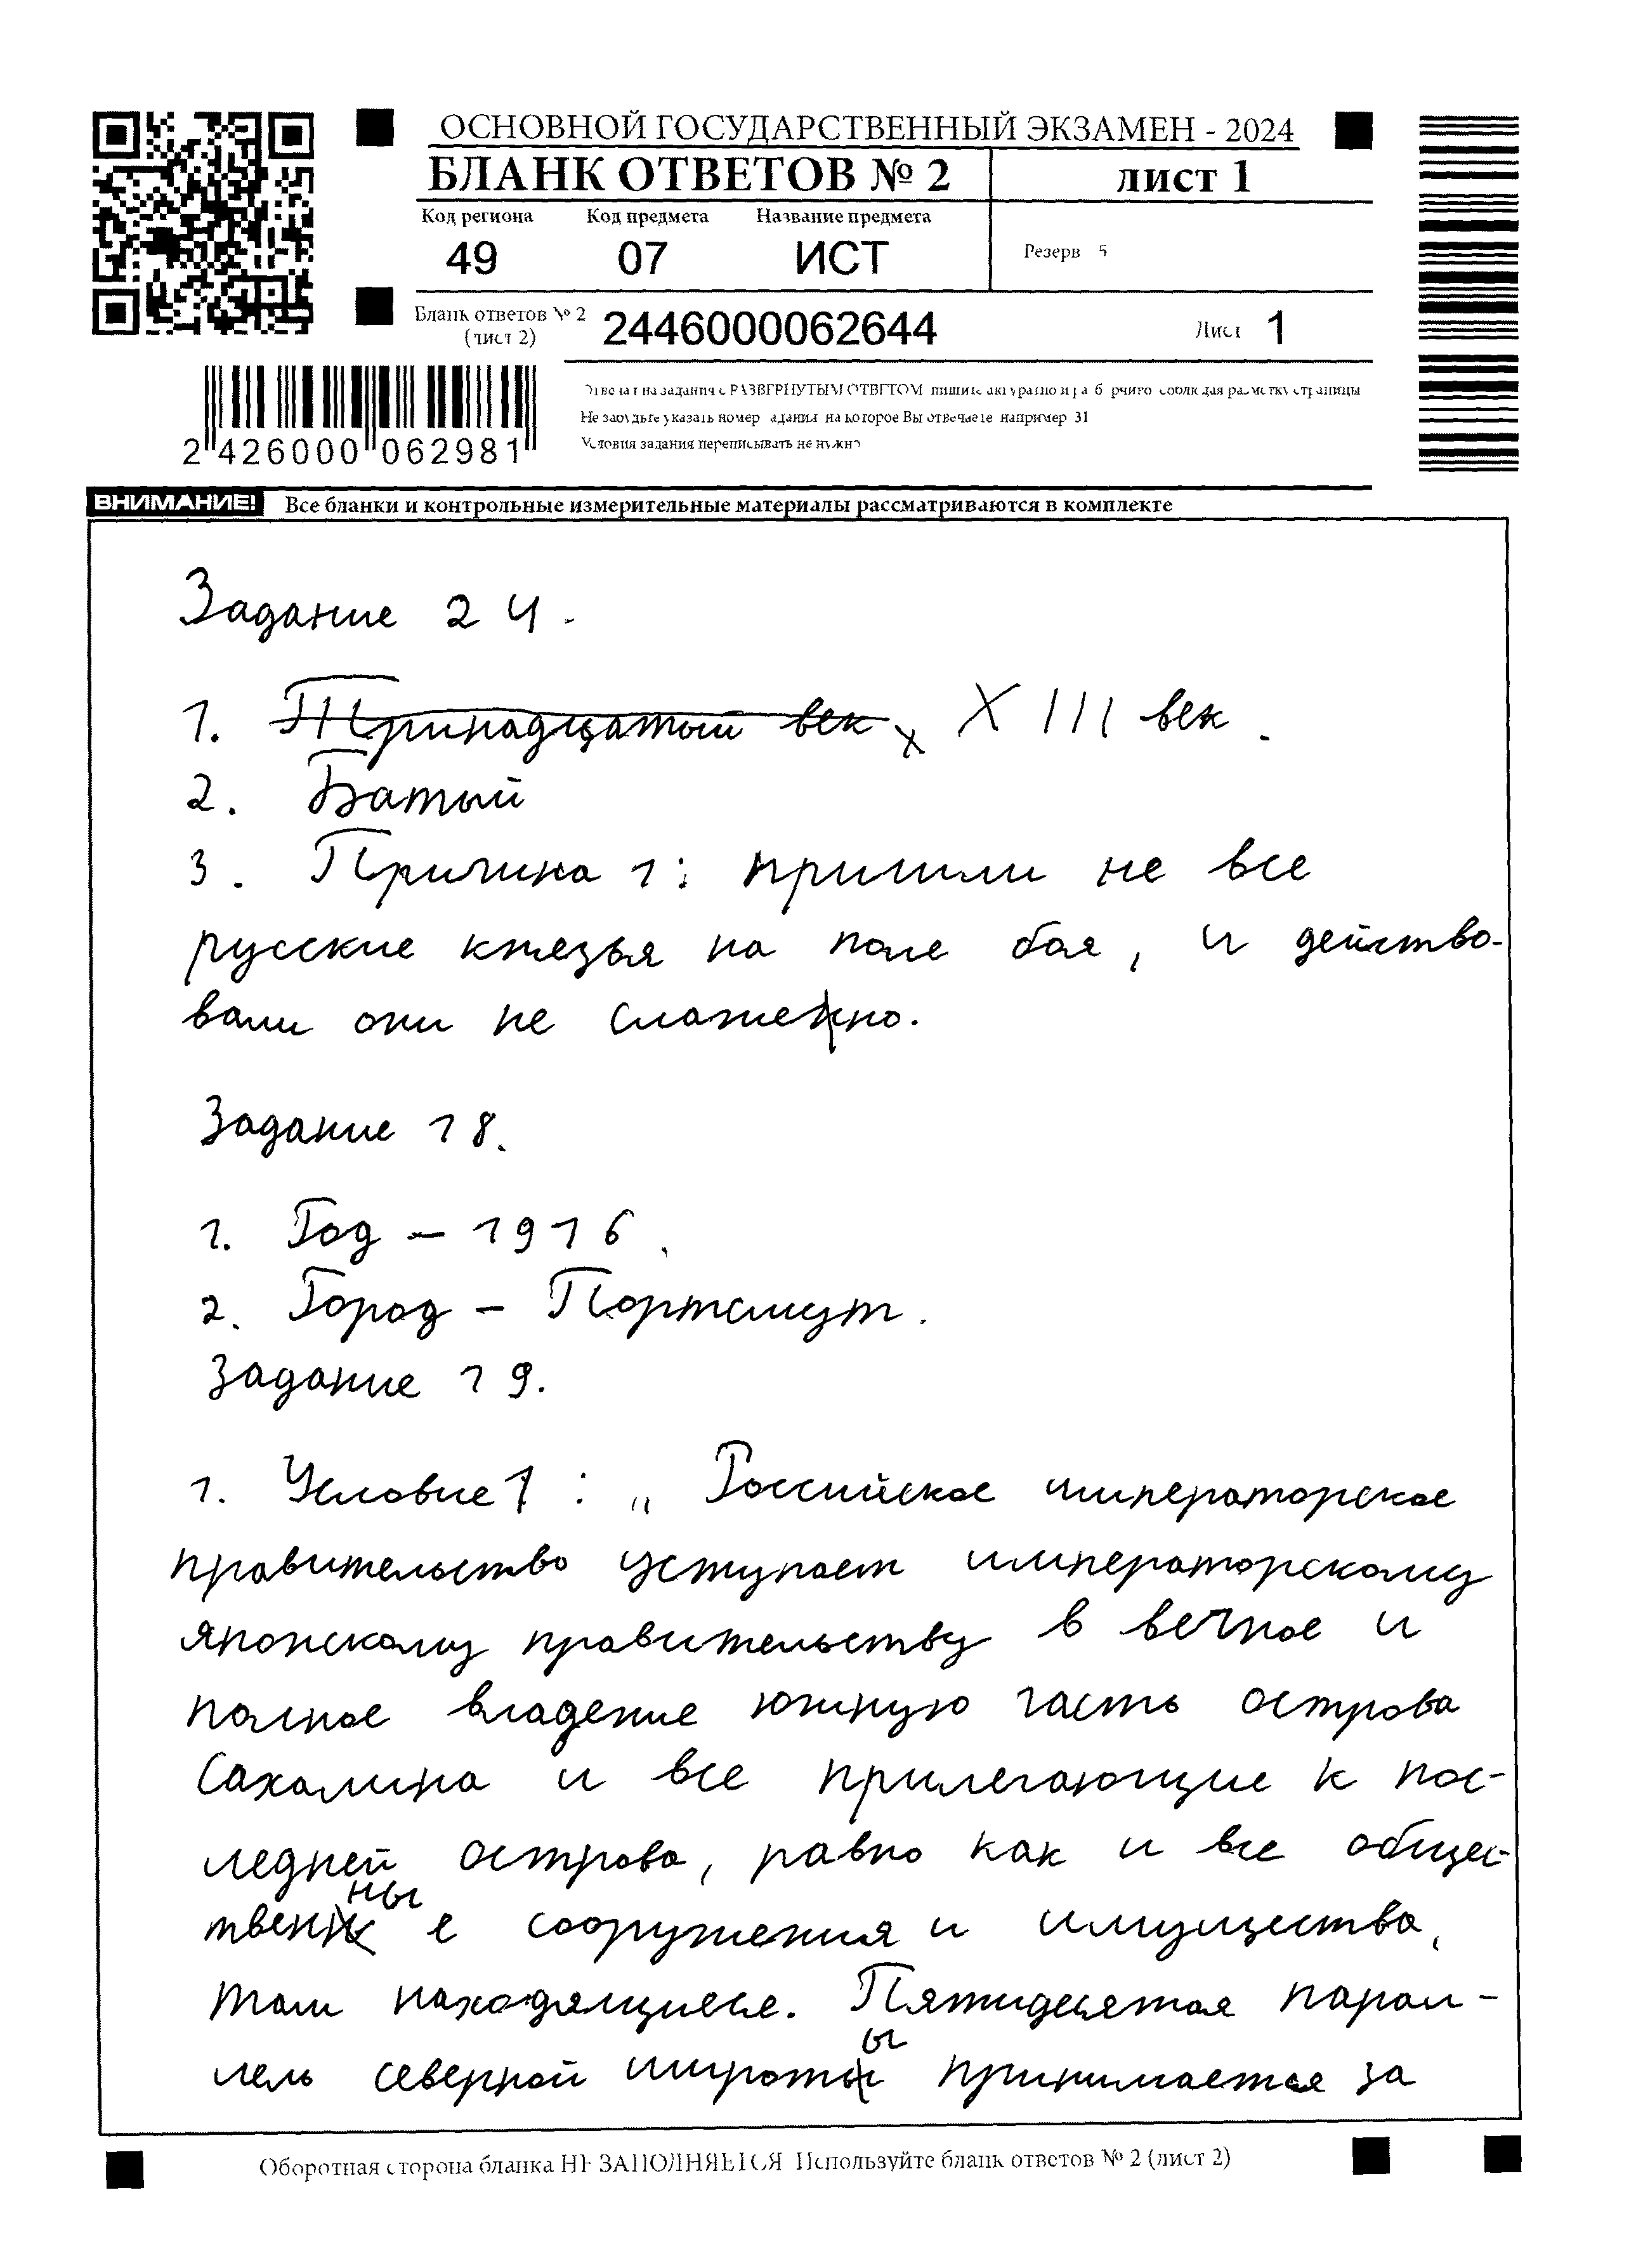 ОСНОВНОЙ ГОСУДАРСТВЕННЫЙ ЭКЗАМЕН - 2024
БЛАНК ОТВЕТОВ № 2
лист 1
Код региона Код предмета Название предмета
49 07 ИСТ
Резерв 5
Бланк ответов № 2
(лист 2)
2446000062644
Лист 1
2 426000 062981
Отвечая на задания с РАЗВЕРНУТЫМ ОТВЕТОМ пишите аккуратно и разборчиво соблюдая разметку страницы
Не забудьте указать номер задания на которое Вы отвечаете например 31
Условия задания переписывать не нужно
ВНИМАНИЕ! Все бланки и контрольные измерительные материалы рассматриваются в комплекте
Задание 24.
1. Тринадцатый век XIII век.
2. Батый
3. Причина 1: пришли не все
русские князья на поле боя, и действо-
вали они не слаженно.
Задание 18.
1. Год – 1916.
2. Город – Портсмут.
Задание 19.
1. Условие 1: „ Российское императорское
правительство уступает императорскому
японскому правительству в вечное и
полное владение южную часть острова
Сахалина и все прилегающие к пос-
ледней острова, равно как и все общес-
твенные сооружения и имущества,
там находящиеся. Пятидесятая парал-
лель северной широты принимается за
Оборотная сторона бланка НЕ ЗАПОЛНЯЕТСЯ Используйте бланк ответов № 2 (лист 2)